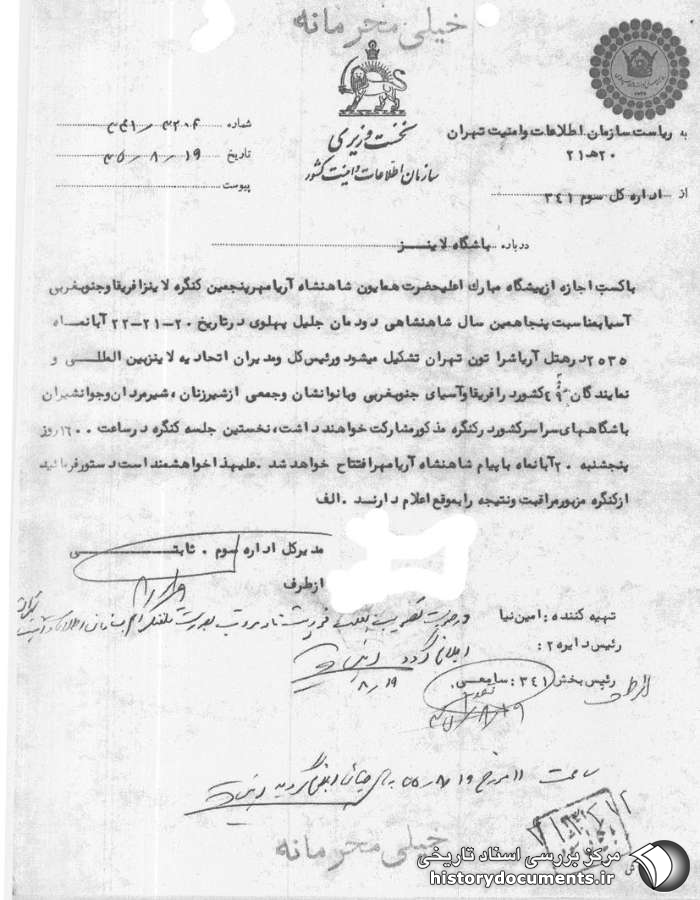 خیلی محرمانه
نخست وزیری
سازمان اطلاعات و امنیت کشور
به ریاست سازمان اطلاعات وامنیت تهران
۲۰هـ۲۱
از اداره کل سوم ۳۴۱
شماره
تاریخ ۳۵٫۸٫۱۹
پیوست
درباره باشگاه لاینـــز
باکسب اجازه ازپیشگاه مبارك اعلیحضرت همایون شاهنشاه آریامهرپنجمین کنگره لاینزافریقاوجنوبغربی
آسیابمناسبت پنجاهمین سال شاهنشاهی دودمان جلیل پهلوی درتاریخ ۲۰-۲۱-۲۲ آبانمــاه
۲۵۳۵ درهتل آریاشراتون تهران تشکیل میشود ورئیس کل ومدیران اتحادیه لاینزبین المللــی و
نمایندگان ۴۹ کشور درافریقاوآسیای جنوبغربی وبانوانشان وجمعی ازشیرزنان ، شیرمردان وجوانشیران
باشگاههای سراسرکشوردرکنگره مذکورمشارکت خواهندداشت، نخستین جلسه کنگره درساعت ۱۶۰۰ روز
پنجشنبه ۲۰ آبانماه با پیام شاهنشاه آریامهرافتتاح خواهد شد .علیهذا خواهشمند است دستورفرمائید
ازکنگره مزبورمراقبت ونتیجه رابموقع اعلام دارند .الف
مدیرکل اداره سوم . ثابتــی
ازطرف
تهیه کننده : امین نیا
رئیس دایره ۲ :
رئیس بخش ۳۴۱ : سامعــی
۸٫۱۹
ساعت ۱۱ مورخ ۵۵٫۸٫۱۹
خیلی محرمانه
مرکز بررسی اسناد تاریخی
historydocuments.ir